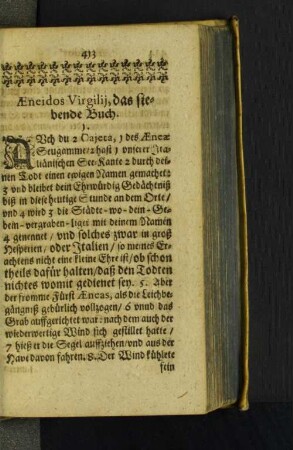 433
Æneidos Virgilij, das sie-
bende Buch.
1.
AUch du 2 Cajeta, 1 des Æneæ
Seugamme / 2 hast 3 unserer Ita-
liänischen See-Kante 2 durch dei-
nen Todt einen ewigen Namen gemachet:
3 vnd bleibet dein Ehrwürdig Gedächtniß
biß in diese heutige Stunde an dem Orte /
vnd 4 wird 3 die Städte-wo-dein-Ge-
bein-vergraben-liget mit deinem Namen
4 genennet / vnd solches zwar in groß
Hesperien / oder Italien / so meines Er-
achtens nicht eine kleine Ehre ist / ob schon
theils dafür halten / daß den Todten
nichtes womit gedienet sey. 5. Aber
der fromme Fürst Æneas, als die Leichbe-
gängniß gebürlich vollzogen / 6 vnnd das
Grab auffgerichtet war: nach dem auch der
wiederwertige Wind sich gestillet hatte /
7 hieß er die Segel auffziehen / vnd aus der
Have davon fahren. 8. Der Wind kühlete
sein